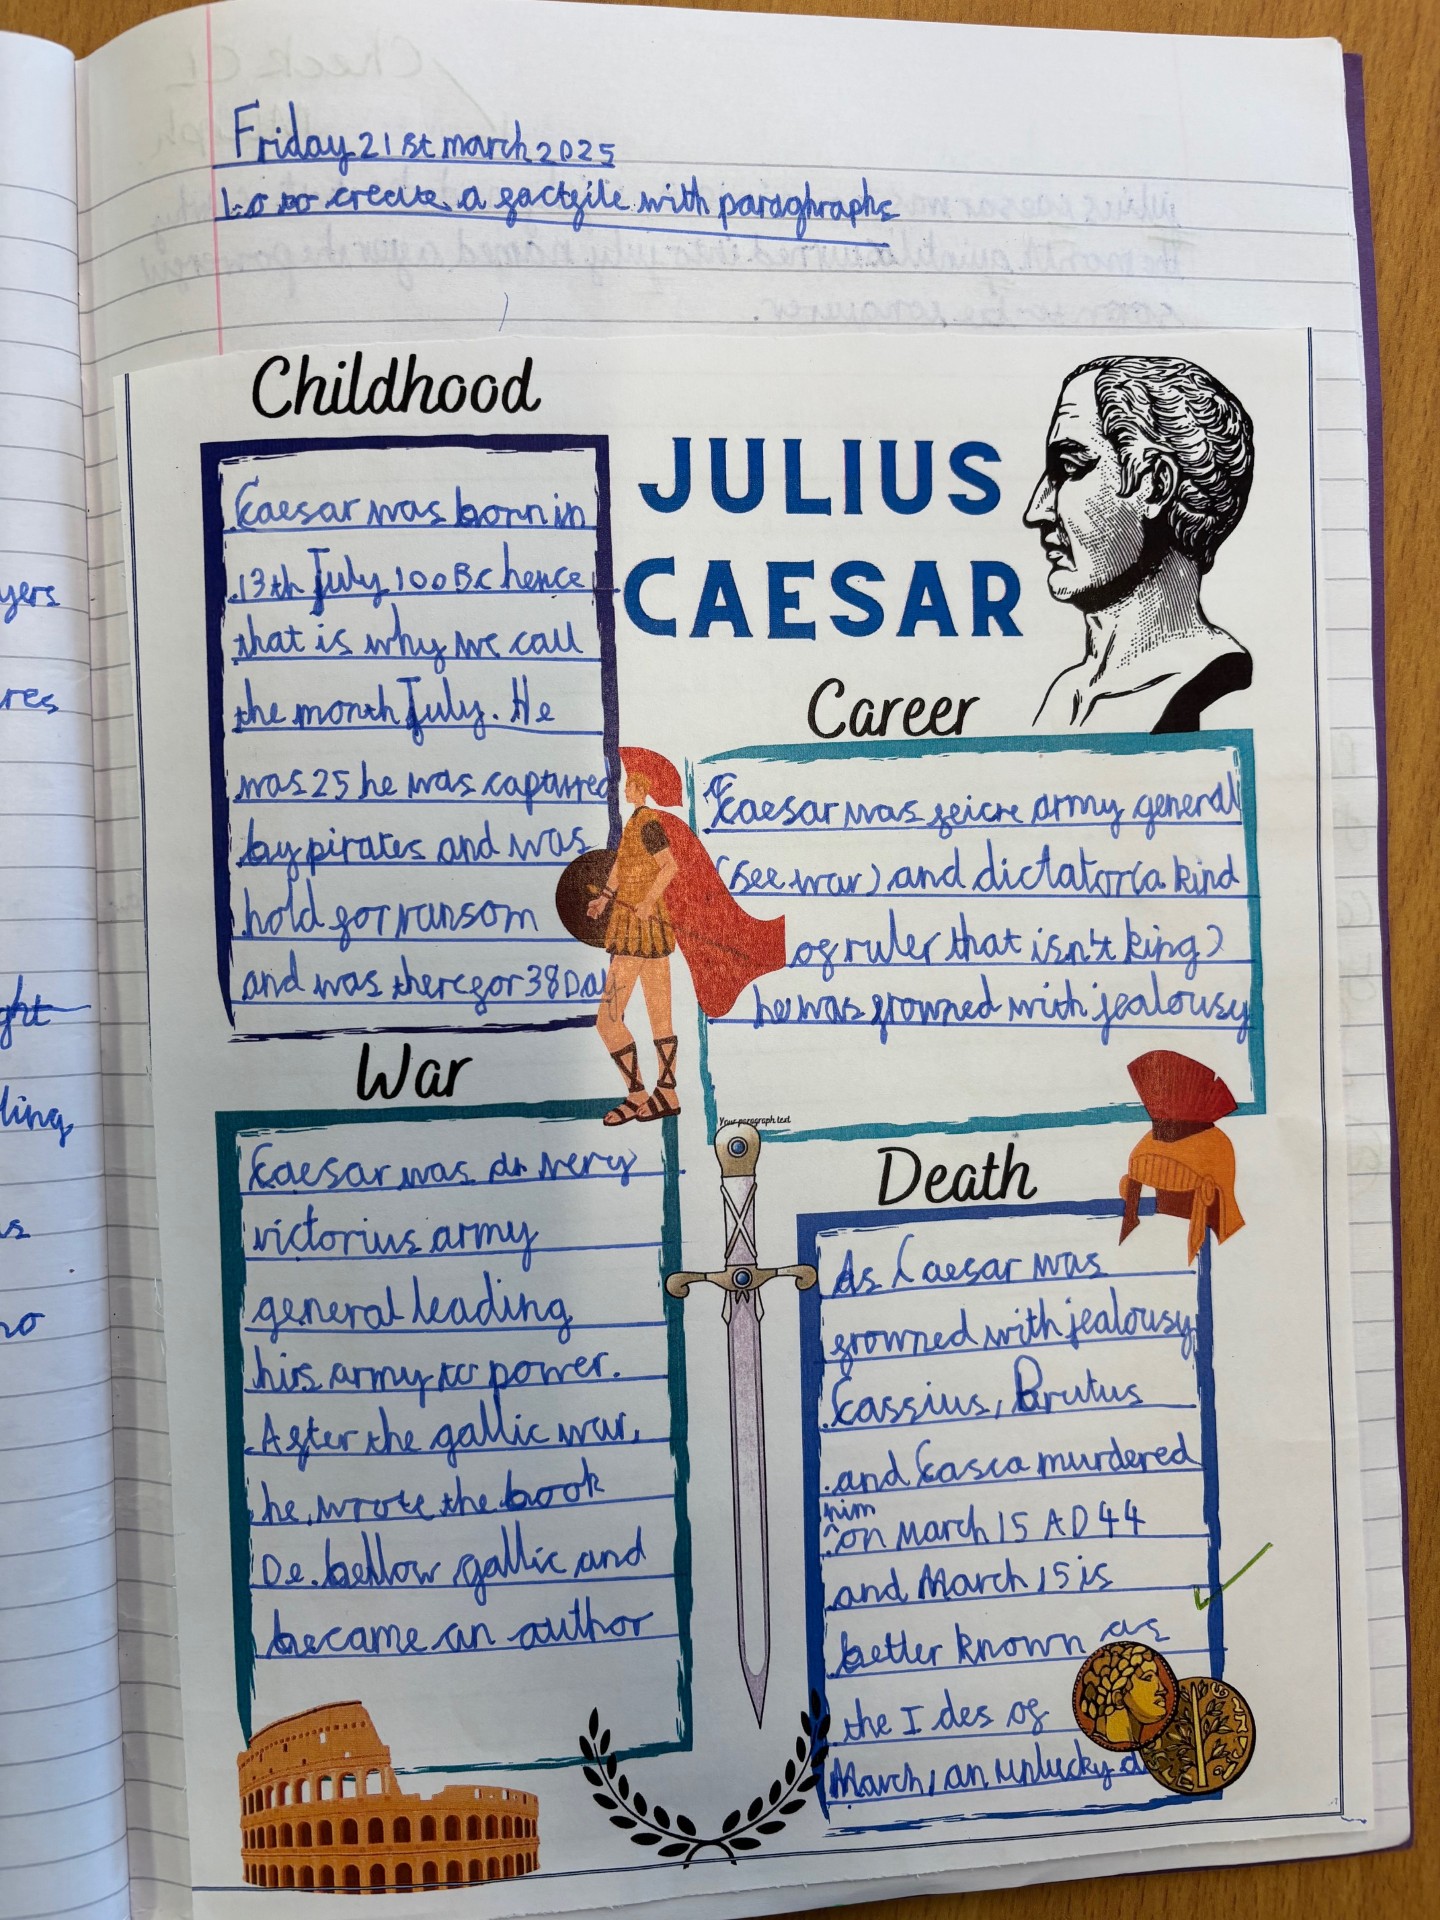 Friday 21st march 2025
Lo to create a factfile with paraghraphs
Childhood
Caesar was born in
13th July 100 BC hence
that is why we call
the month July. He
was 25 he was captured
by pirates and was
hold for ransom
and was there for 38 Day
JULIUS
CAESAR
Career
Caesar was feicre army general
(see war) and dictator (a kind
of ruler that isn't king)
he was frowned with jealousy
War
Caesar was a very
victorius army
general leading
his army to power.
After the gallic war,
he wrote the book
De bellow gallic and
became an author
Your paragraph text
Death
As Caesar was
frowned with jealousy
Cassius, Brutus
and Casca murdered
him
on March 15 AD 44
and March 15 is
better known as
the Ides of
March, an unlucky d
yers
res
ght
ling
s
no